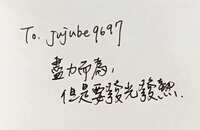 To. jujube9697
盡力而為,
但是要發光發熱.